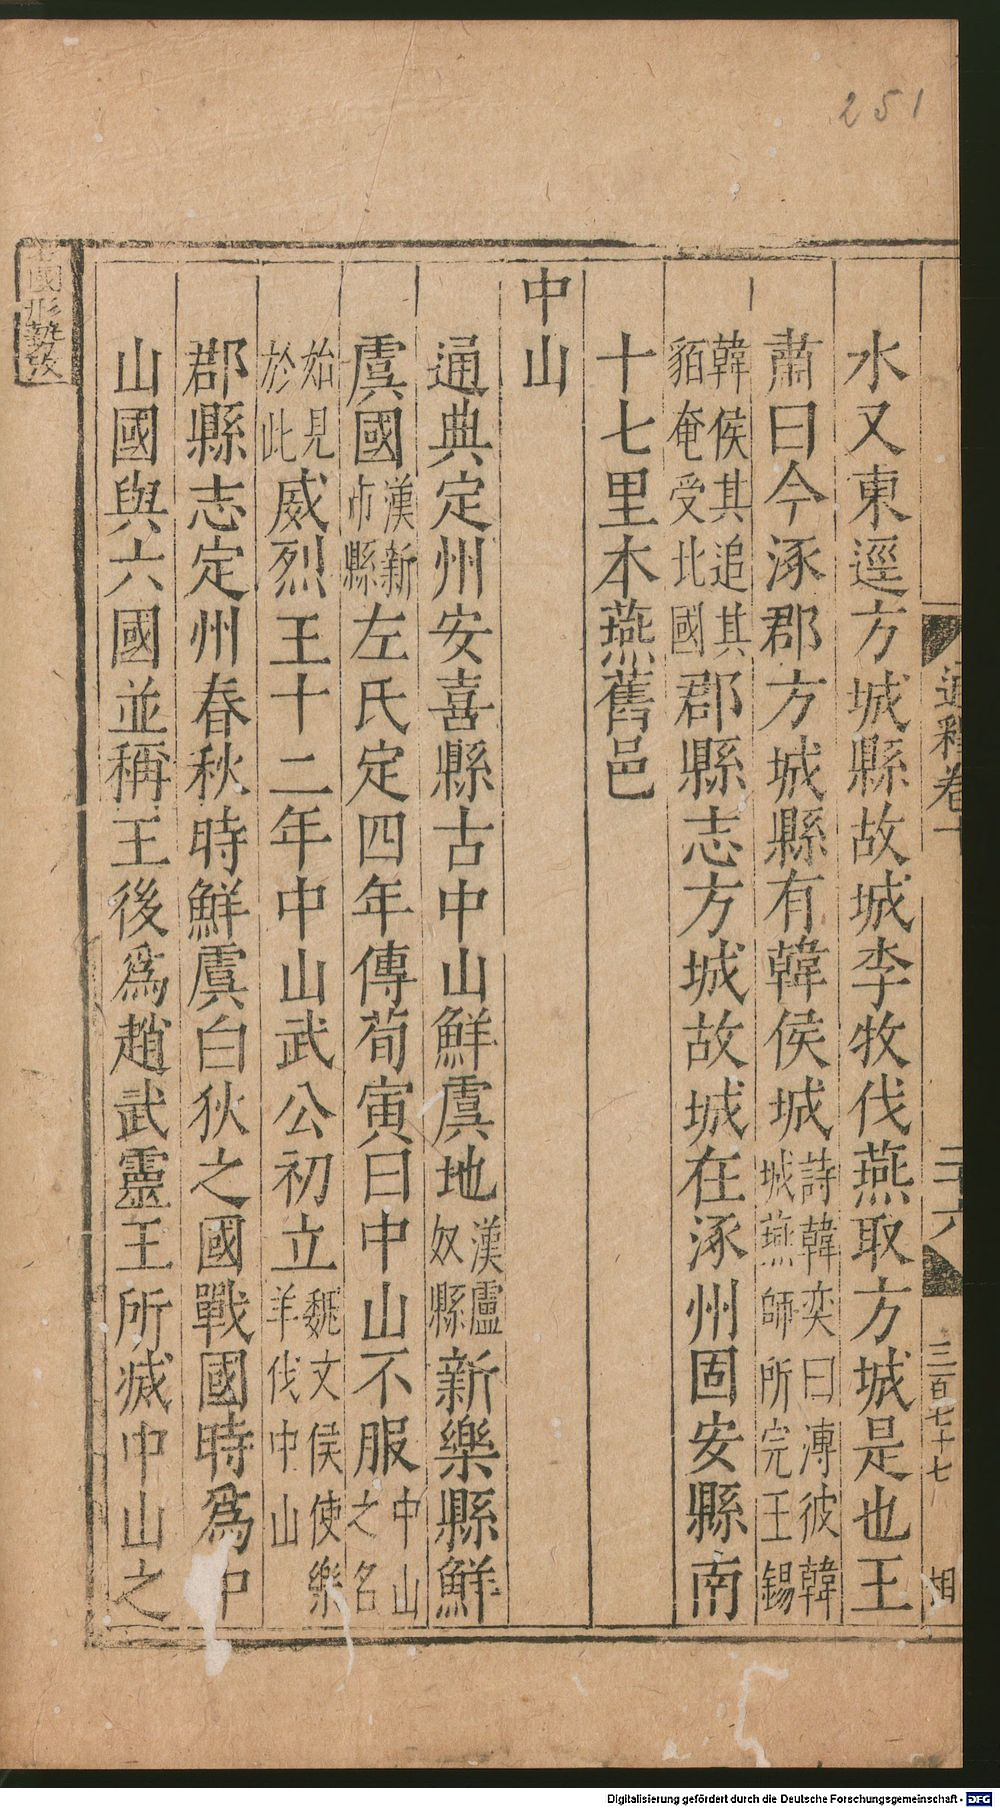 251
水又東逕方城縣故城李牧伐燕取方城是也王
肅曰今涿郡方城縣有韓侯城詩韓奕曰溥彼韓城燕師所完王錫
韓侯其追其貊奄受北國郡縣志方城故城在涿州固安縣南
十七里本燕舊邑
中山
通典定州安喜縣古中山鮮虞地漢盧奴縣新樂縣鮮
虞國漢新市縣左氏定四年傳荀寅曰中山不服中山之名
始見於此威烈王十二年中山武公初立魏文侯使樂羊伐中山
郡縣志定州春秋時鮮虞白狄之國戰國時爲中
山國與六國並稱王後爲趙武靈王所滅中山之
國形勢攷
通釋卷十
二十六
三百七十七
相
Digitalisierung gefördert durch die Deutsche Forschungsgemeinschaft - DFG